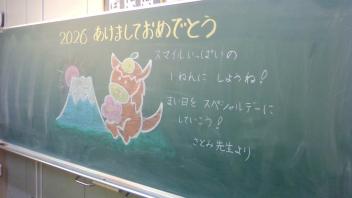 2026 あけましておめでとう
スマイルいっぱいの
1ねんに しようね!
まい日を スペシャルデーに
していこう!
さとみ先生より